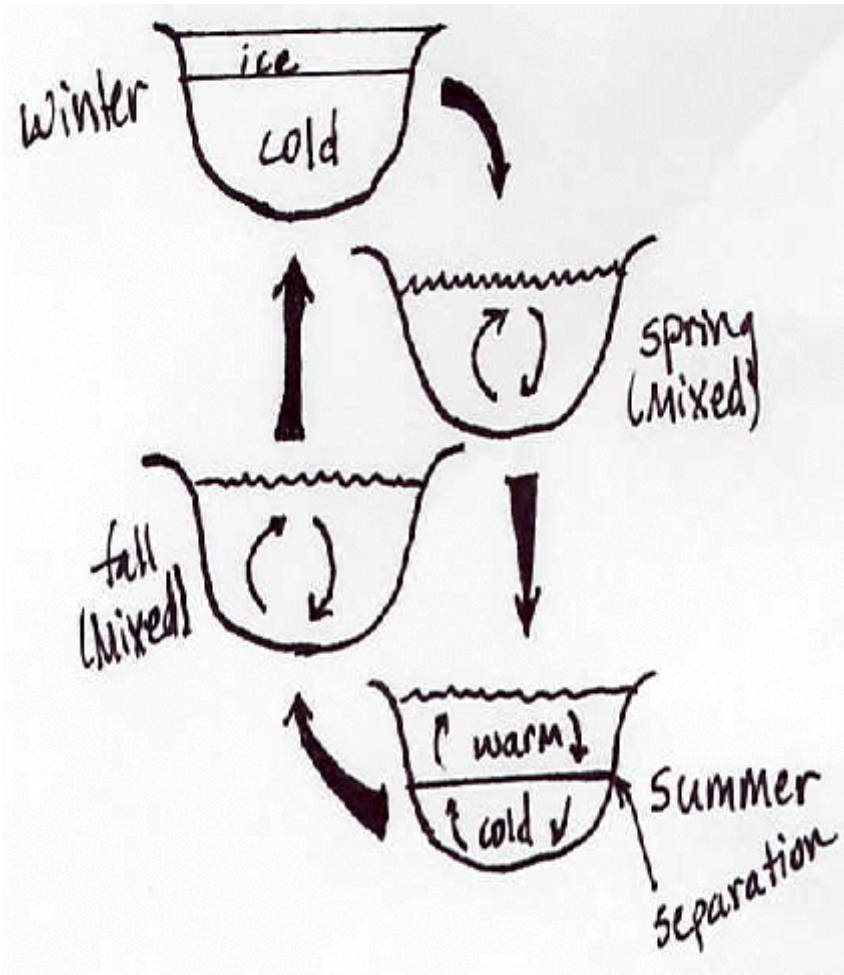 ice
winter
cold
spring
(Mixed)
fall
(Mixed)
warm
cold
Summer
separation